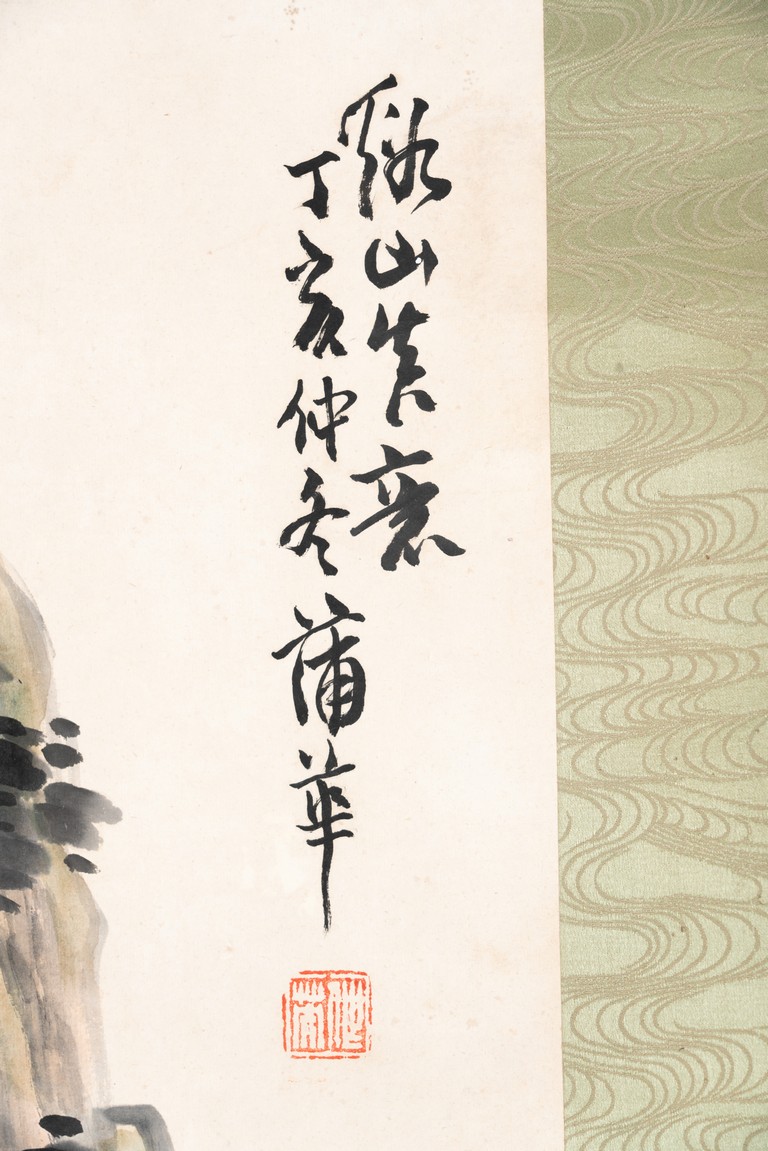 谿山真意
丁亥仲冬蒲華